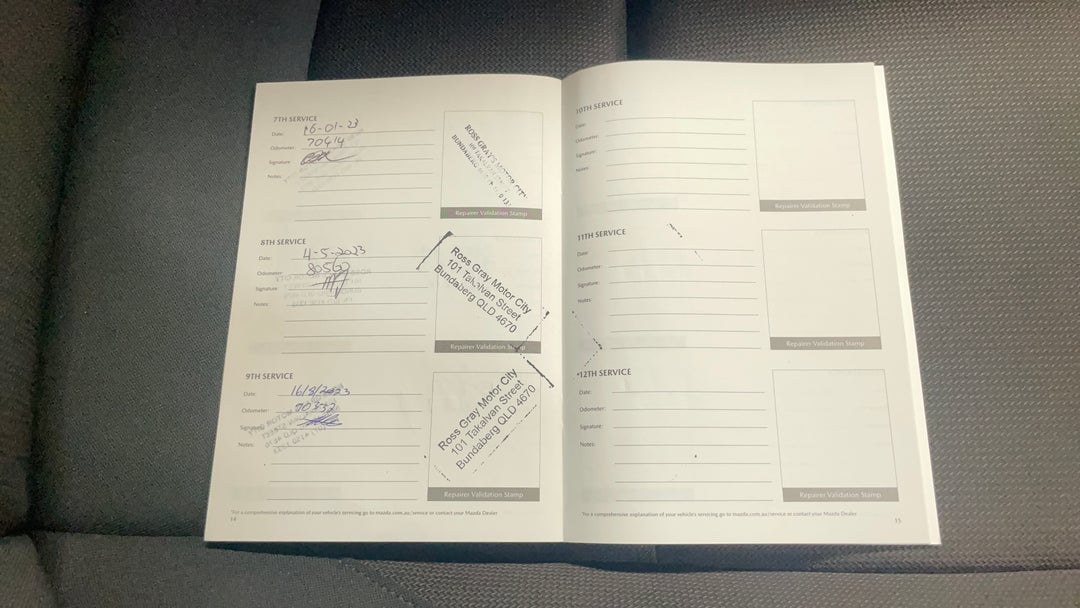 7TH SERVICE
Date: 16-01-23
Odometer: 70414
Signature:
Notes:
ROSS GRAY'S MOTOR CITY
BUNDABERG
Repairer Validation Stamp
8TH SERVICE
Date: 4-5-2023
Odometer: 80562
Signature:
Notes:
Ross Gray Motor City
101 Takalvan Street
Bundaberg QLD 4670
Repairer Validation Stamp
9TH SERVICE
Date: 16/8/2023
Odometer: 90332
Signature:
Notes:
Ross Gray Motor City
101 Takalvan Street
Bundaberg QLD 4670
Repairer Validation Stamp
*For a comprehensive explanation of your vehicle's servicing go to mazda.com.au/service or contact your Mazda Dealer
14
10TH SERVICE
Date:
Odometer:
Signature:
Notes:
Repairer Validation Stamp
11TH SERVICE
Date:
Odometer:
Signature:
Notes:
Repairer Validation Stamp
*12TH SERVICE
Date:
Odometer:
Signature:
Notes:
Repairer Validation Stamp
*For a comprehensive explanation of your vehicle's servicing go to mazda.com.au/service or contact your Mazda Dealer
15